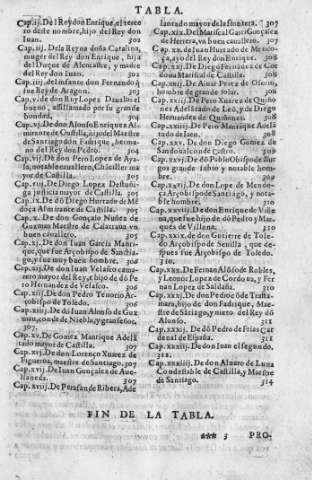 TABLA.
Cap.ij. Del Rey don Enrique, el terce
ro deste nombre, hijo del Rey don
Iuan. 302
Cap.iij. De la Reyna doña Catalina,
muger del Rey don Enrique, hija
del Duque de Alencastre, y madre
del Rey don Iuan. 303
Cap.iiij. del infante don Fernando q̃
fue Rey de Aragon. 303
Cap.v. de don Ruy Lopez Daualo el
bueno, assi llamado por su grande
bondad, 304
Cap.vj. De don Alonso Enriquez Al-
mirante de Castilla, hijo del Maestre
de Santiago don Fadrique, herma-
no del Rey don Pedro. 304
Cap.vij. De don Pero Lopez de Aya-
la, notable cauallero, Chãciller ma
yor de Castilla. 305
Cap.viij. De Diego Lopez Destuñi-
ga justicia mayor de Castilla. 305
Cap.ix. De dõ Diego Hurtado de Mẽ
doça Almirante de Castilla. 305
Cap.x. De don Gonçalo Nuñez de
Guzman Maestre de Calatraua vn
buen cauallero. 305
Cap.xj. De don Iuan Garcia Manri-
que, que fue Arçobispo de Sanctia-
go, y fue muy buen hombre. 306
Cap.xij. De don Iuan Velasco cama-
rero mayor del Rey, e hijo de dõ Pe
ro Hernandez de Velasco. 306
Cap.xiij. De don Pedro Tenorio Ar-
çobispo de Toledo. 306
Cap.xiiij. De dõ Iuan Alonso de Guz
man, conde de Niebla, y gran señor.
307.
Cap.xv. De Gomez Manrique Adelã
tado mayor de Castilla. 307
Cap.xvj. De don Lorenço Xuarez de
Figueroa, maestre de Santiago. 307
Cap.xvij. De Iuan Gonçalez de Aue-
llaneda. 307
Cap.xviij. De Perafan de Ribera, Ade
lantado mayor de la frõtera. 307
Cap.xix. Del Mariscal Garci Gonçalez
de Herrera, vn buen cauallero. 307
Cap.xx. de Iuan Hurtado de Mendo-
ça, ayo del Rey don Enrique. 308
Cap.xxj. De Diego Fernãdez de Cor
doua Mariscal de Castilla. 308
Cap.xxij. De Aluar Perez de Osorio,
hombre de gran solar. 308
Cap.xxiij. De Pero Xuarez de Quiño-
nes Adelãtado de Leõ, y de Diego
Hernandez de Quiñones. 308
Cap.xxiiij. De Pero Manrique Adelã
tado de Leon. 308
Cap.xxv. De don Diego Gomez de
Sandoual conde de Castro. 308
Cap.xxvj. De dõ Pablo Obispo de Bur
gos grande sabio y notable hom-
bre. 309
Cap.xxvij. De don Lope de Mendo-
ça Arçobispo de Santiago, y nota-
ble hombre. 310
Cap.xxviij. De don Enrique de Ville
na, que fue hijo de dõ Pedro y Mar-
ques de Villena. 310
Cap.xxix. de don Gutierre de Tole-
do Arçobispo de Seuilla, que des-
pues fue Arçobispo de Toledo.
310.
Cap.xxx. De Fernan Alõso de Robles,
y Leonis Lopez de Cordoua, y Fer
nan Lopez de Saldaña. 310
Cap.xxxj. De don Pedro
tara, hijo de don Fadrique, Maes-
tre de Sãtiago, y nieto del Rey dõ
Alonso. 311
Cap.xxxij. De dõ Pedro de Frias, car
denal de España. 311
Cap.xxxiij. De don Iuan el segundo,
311.
Cap.xxxiiij. De don Aluaro de Luna
Condestable de Castilla, y Maestre
de Santiago. 314
FIN DE LA TABLA.
*** 3 PRO-